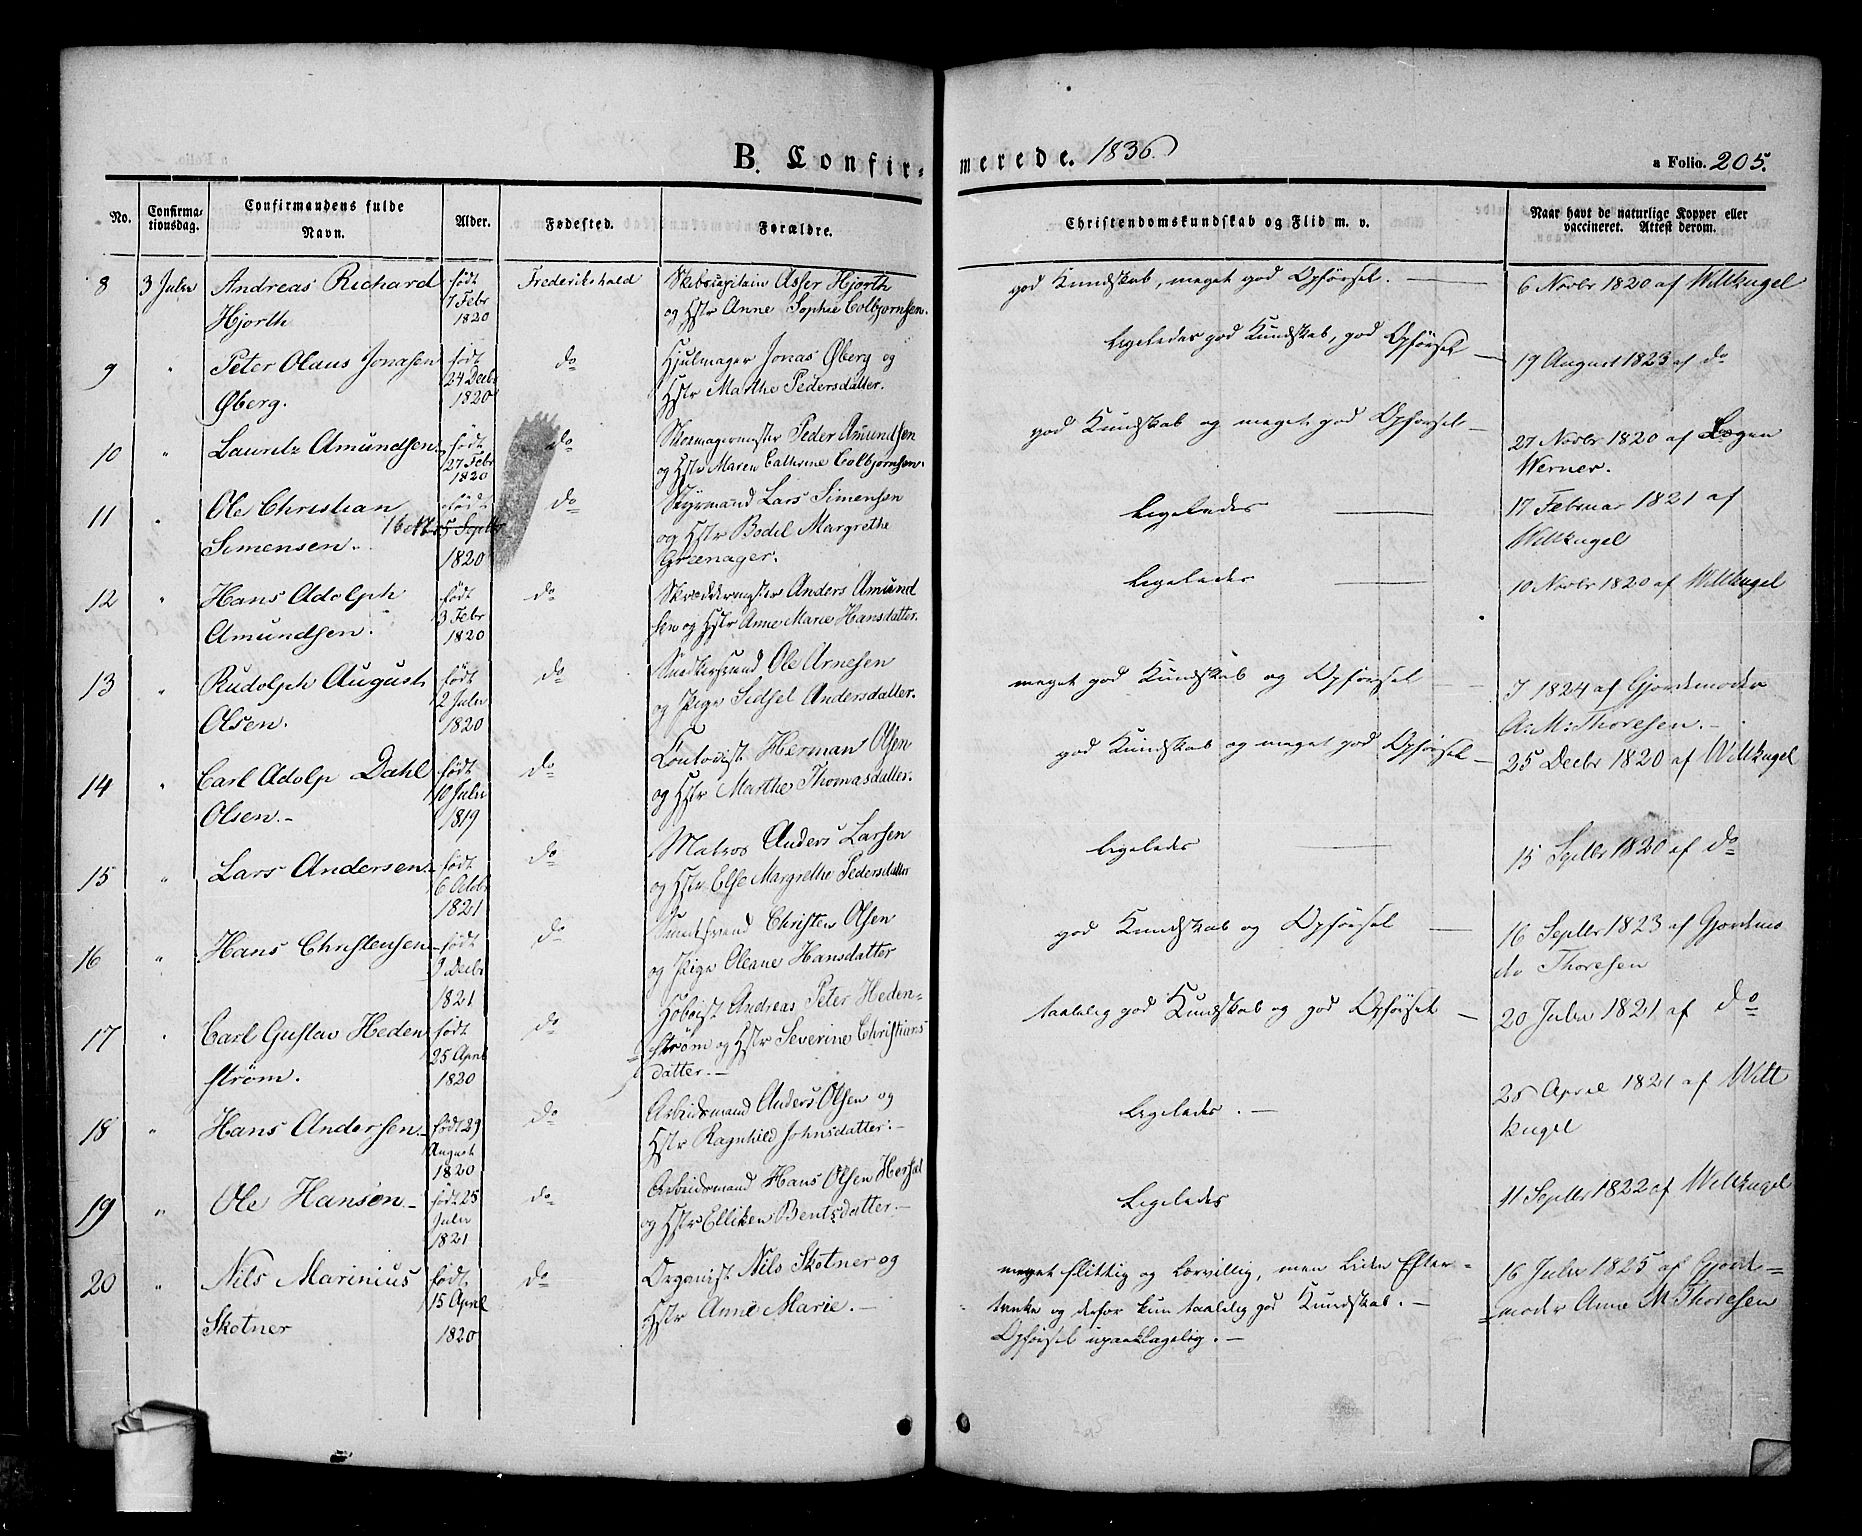 B. Confir-
merede. 1836.
a Folio. 205.
No. Confirma-tionsdag. Confirmandens fulde Navn. Alder. Fødested. Forældre. Christendomskundskab og Flid m. v. Naar havt de naturlige Kopper eller vaccineret. Attest derom.
8 3 Julii Andreas Richard født Frederikshald Skibscapitain Asser Hjorth god Kundskab, meget god Opførsel. — 6 Novbr 1820 af Wittkugel
Hjorth 7 Febr 1820 og Hstr Anne Sophie Colbjørnsen.
9 " Peter Olaus Jonasen født do Hjulmager Jonas Øberg og ligeledes god Kundskab, god Opførsel — 19 August 1823 af do
Øberg. 24 Decbr 1820 Hstr Marthe Pedersdatter.
10 " Lauritz Amundsen født do Skomagermester Peder Amundsen god Kundskab og meget god Opførsel — 27 Novbr 1820 af Lægen
27 Febr 1820 og Hstr Maren Cathrine Colbjørnsen. Werner.
11 " Ole Christian født do Styrmand Lars Simensen ligeledes — 17 Februar 1821 af
Simensen. 16 Oct 5 Septbr 1820 og Hstr Bodel Margrethe Wittkugel
Grænager.
12 " Hans Adolph født do Skræddermester Anders Amund ligeledes — 10 Novbr 1820 af Wittkugel
Amundsen. 3 Febr 1820 sen og Hstr Anne Marie Hansdatter.
13 " Rudolph August født do Snedkersvend Ole Arnesen meget god Kundskab og Opførsel — 7 1824 af Gjordemoder
Olsen. 2 Julii 1820 og Pige Sidsel Andersdatter. A: M: Thoresen. —
14 " Carl Adolp Dahl født do Herman Olsen god Kundskab og meget god Opførsel — 25 Decbr 1820 af Wittkugel
Olsen. — 10 Julii 1819 og Hstr Marthe Thomasdatter.
15 " Lars Andersen født do Matros Anders Larsen ligeledes — 15 Septbr 1820 af do
6 Octbr 1821 og Hstr Else Margrethe Pedersdatter
16 " Hans Christensen — født do Christen Olsen god Kundskab og Opførsel — 16 Septbr 1823 af Gjordemo
9 Decbr 1821 og Pige Oleane Hansdatter do Thoresen
17 " Carl Gustav Heden født do Hoboist Andreas Peter Heden= taalelig god Kundskab og god Opførsel — 20 Julii 1821 af do
strøm. 25 April 1820 strøm og Hstr Severine Christians
datter. —
18 " Hans Andersen. født 29 do Arbeidsmand Anders Olsen og ligeledes. — 25 April 1821 af Witt
August 1820 Hstr Ragnhild Johnsdatter. — kugel
19 " Ole Hansen — født 25 do Arbeidsmand Hans Olsen ligeledes 11 Septbr 1822 af Wittkugel
Julii 1821 og Hstr Elliken Bentsdatter. —
20 " Nils Marinius født do Organist Nils Skotner og meget flittig og lærvillig, men liden Efter= 16 Julii 1825 af Gjorde=
Skotner 15 April 1820 Hstr Anne Marie. — tanke og derfor kun taalelig god Kundskab. — moder Anne M Thoresen
Opførsel upaaklagelig. —